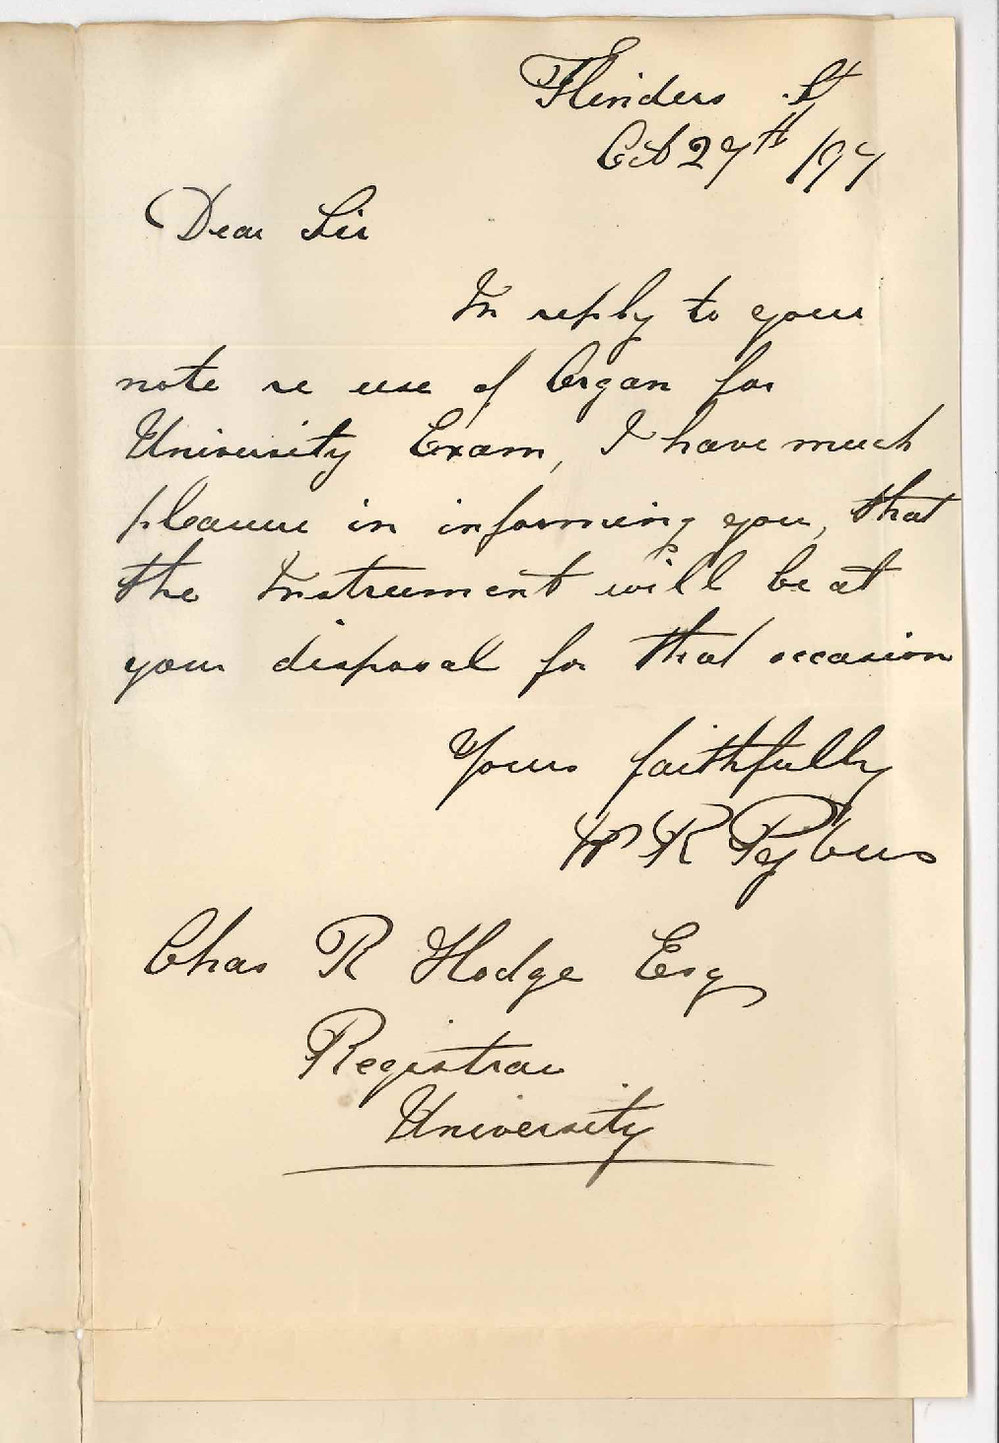 Flinders St
Oct 27th /97
Dear Sir
In reply to your
note re use of Organ for
University Exam, I have much
pleasure in informing you, that
the Instrument will be at
your disposal for that occasion
Yours faithfully
W R Pybus
Chas R Hodge Esq
Registrar
University